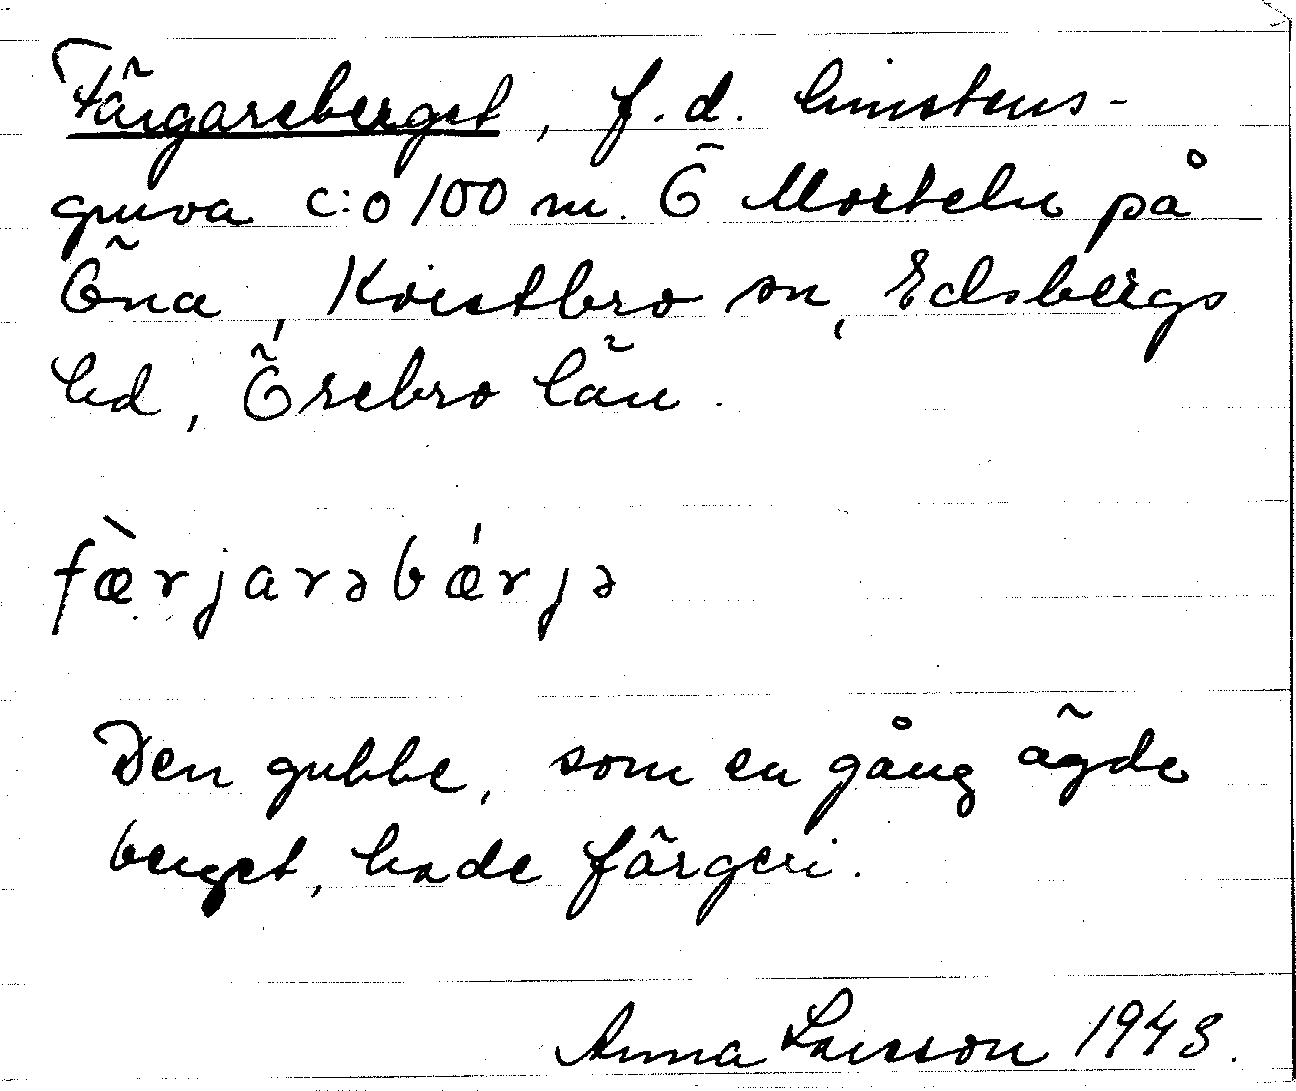 Färgareberget, f.d. limstens-
gruva c:o 100 m. Ö Morteln på
Öna, Kvistbro sn, Edsbergs
hd, Örebro län.
fæ̀rjarəbǽrjə
Den gubbe, som en gång ägde
berget, hade färgeri.
Anna Larsson 1943.